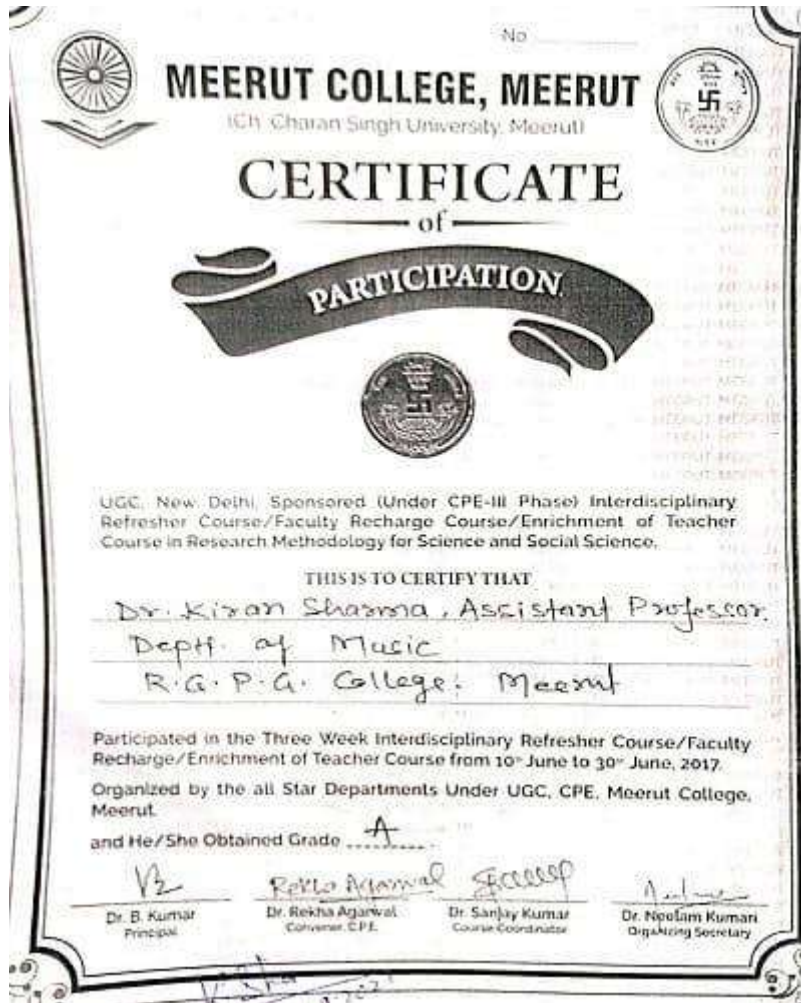 No
MEERUT COLLEGE, MEERUT
(Ch. Charan Singh University, Meerut)
CERTIFICATE
of
PARTICIPATION
UGC, New Delhi, Sponsored (Under CPE-III Phase) Interdisciplinary
Refresher Course/Faculty Recharge Course/Enrichment of Teacher
Course in Research Methodology for Science and Social Science.
THIS IS TO CERTIFY THAT
Dr. Kiran Sharma, Assistant Professor.
Deptt. of Music
R.G.P.G. College, Meerut
Participated in the Three Week Interdisciplinary Refresher Course/Faculty
Recharge/Enrichment of Teacher Course from 10th June to 30th June, 2017.
Organized by the all Star Departments Under UGC, CPE, Meerut College,
Meerut.
and He/She Obtained Grade A
Rekha Agarwal
Dr. B. Kumar Dr. Rekha Agarwal Dr. Sanjay Kumar Dr. Neelam Kumari
Principal Convener, C.P.E. Course Coordinator Organizing Secretary